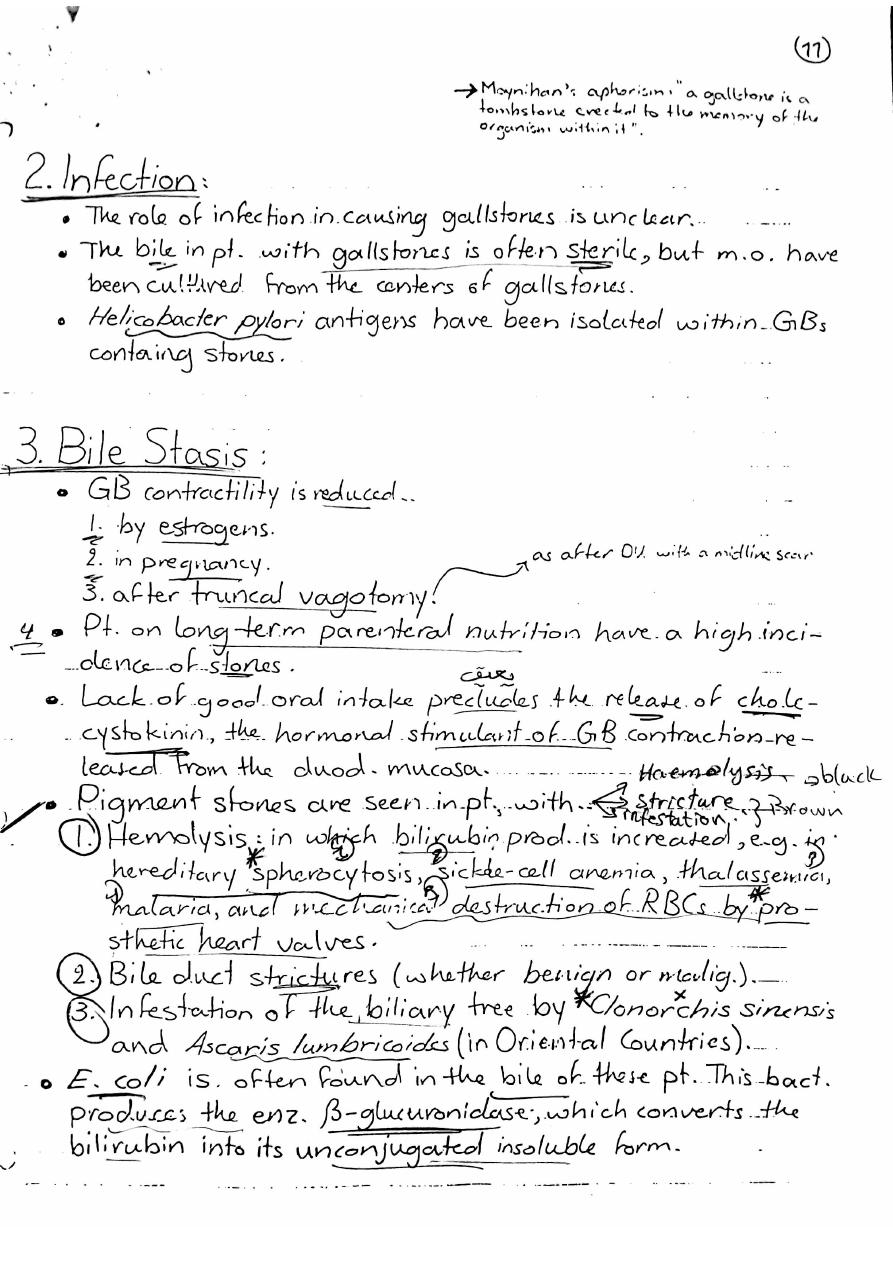 11
→ Moynihan's aphorism: "a gallstone is a
tombstone erected to the memory of the
organism within it".
2. Infection:
• The role of infection in causing gallstones is unclear.
• The bile in pt. with gallstones is often sterile, but m.o. have
been cultured from the centers of gallstones.
• Helicobacter pylori antigens have been isolated within GBs
containg stones.
3. Bile Stasis:
• GB contractility is reduced..
1. by estrogens.
2. in pregnancy.
as after DU with a midline scar
3. after truncal vagotomy.
4 • Pt. on long-term parenteral nutrition have a high inci-
dence of stones.
• Lack of good oral intake precludes the release of chole-
cystokinin, the hormonal stimulant of GB contraction re-
leased from the duod. mucosa.
Haemolysis → black
• Pigment stones are seen in pt. with stricture } Brown
infestation.
1. Hemolysis: in which bilirubin prod. is increased, e.g. in
hereditary * spherocytosis, sickle-cell anemia, thalassemia,
malaria, and mechanical destruction of RBCs by * pro-
sthetic heart valves.
2. Bile duct strictures (whether benign or malig.).
3. Infestation of the biliary tree by * Clonorchis sinensis
and Ascaris lumbricoides (in Oriental Countries).
• E. coli is often found in the bile of these pt. This bact.
produces the enz. β-glucuronidase, which converts the
bilirubin into its unconjugated insoluble form.